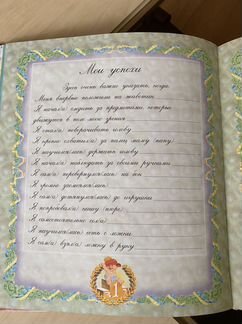 Мои успехи
Здесь очень важно указать, когда
Меня впервые положили на животик
Я начал(а) следить за предметами, которые
движутся в поле моего зрения
Я стал(а) поворачивать голову
Я крепко схватил(а) за палец маму (папу)
Я научился(лась) держать голову
Я начал(а) наблюдать за своими ручками
Я сам(а) перевернулся(лась) на бок
Я громко засмеялся(лась)
Я сам(а) дотянулся(лась) до игрушки
Я попробовал(а) кашу (пюре)
Я самостоятельно сел(а)
Я научился(лась) есть с ложки
Я сам(а) взял(а) ложку в руку
1